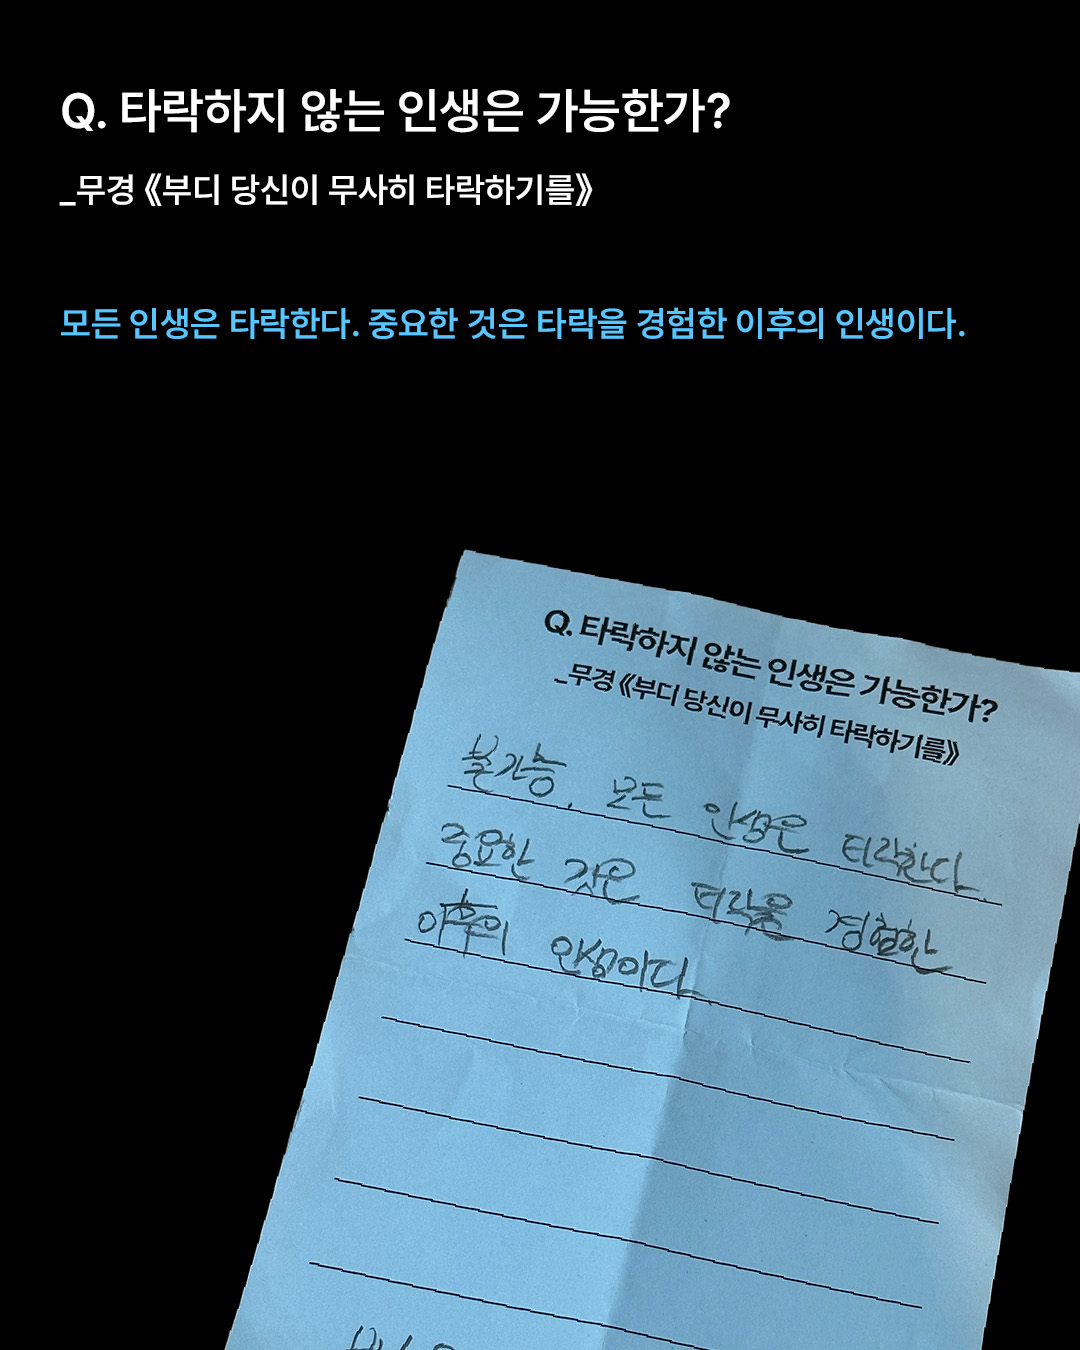 Q. 타락하지 않는 인생은 가능한가?
_무경 《부디 당신이 무사히 타락하기를》
모든 인생은 타락한다. 중요한 것은 타락을 경험한 이후의 인생이다.
Q. 타락하지 않는 인생은 가능한가?
_무경 《부디 당신이 무사히 타락하기를》
불가능. 모든 인생은 타락한다.
중요한 것은 타락을 경험한
이후의 인생이다.